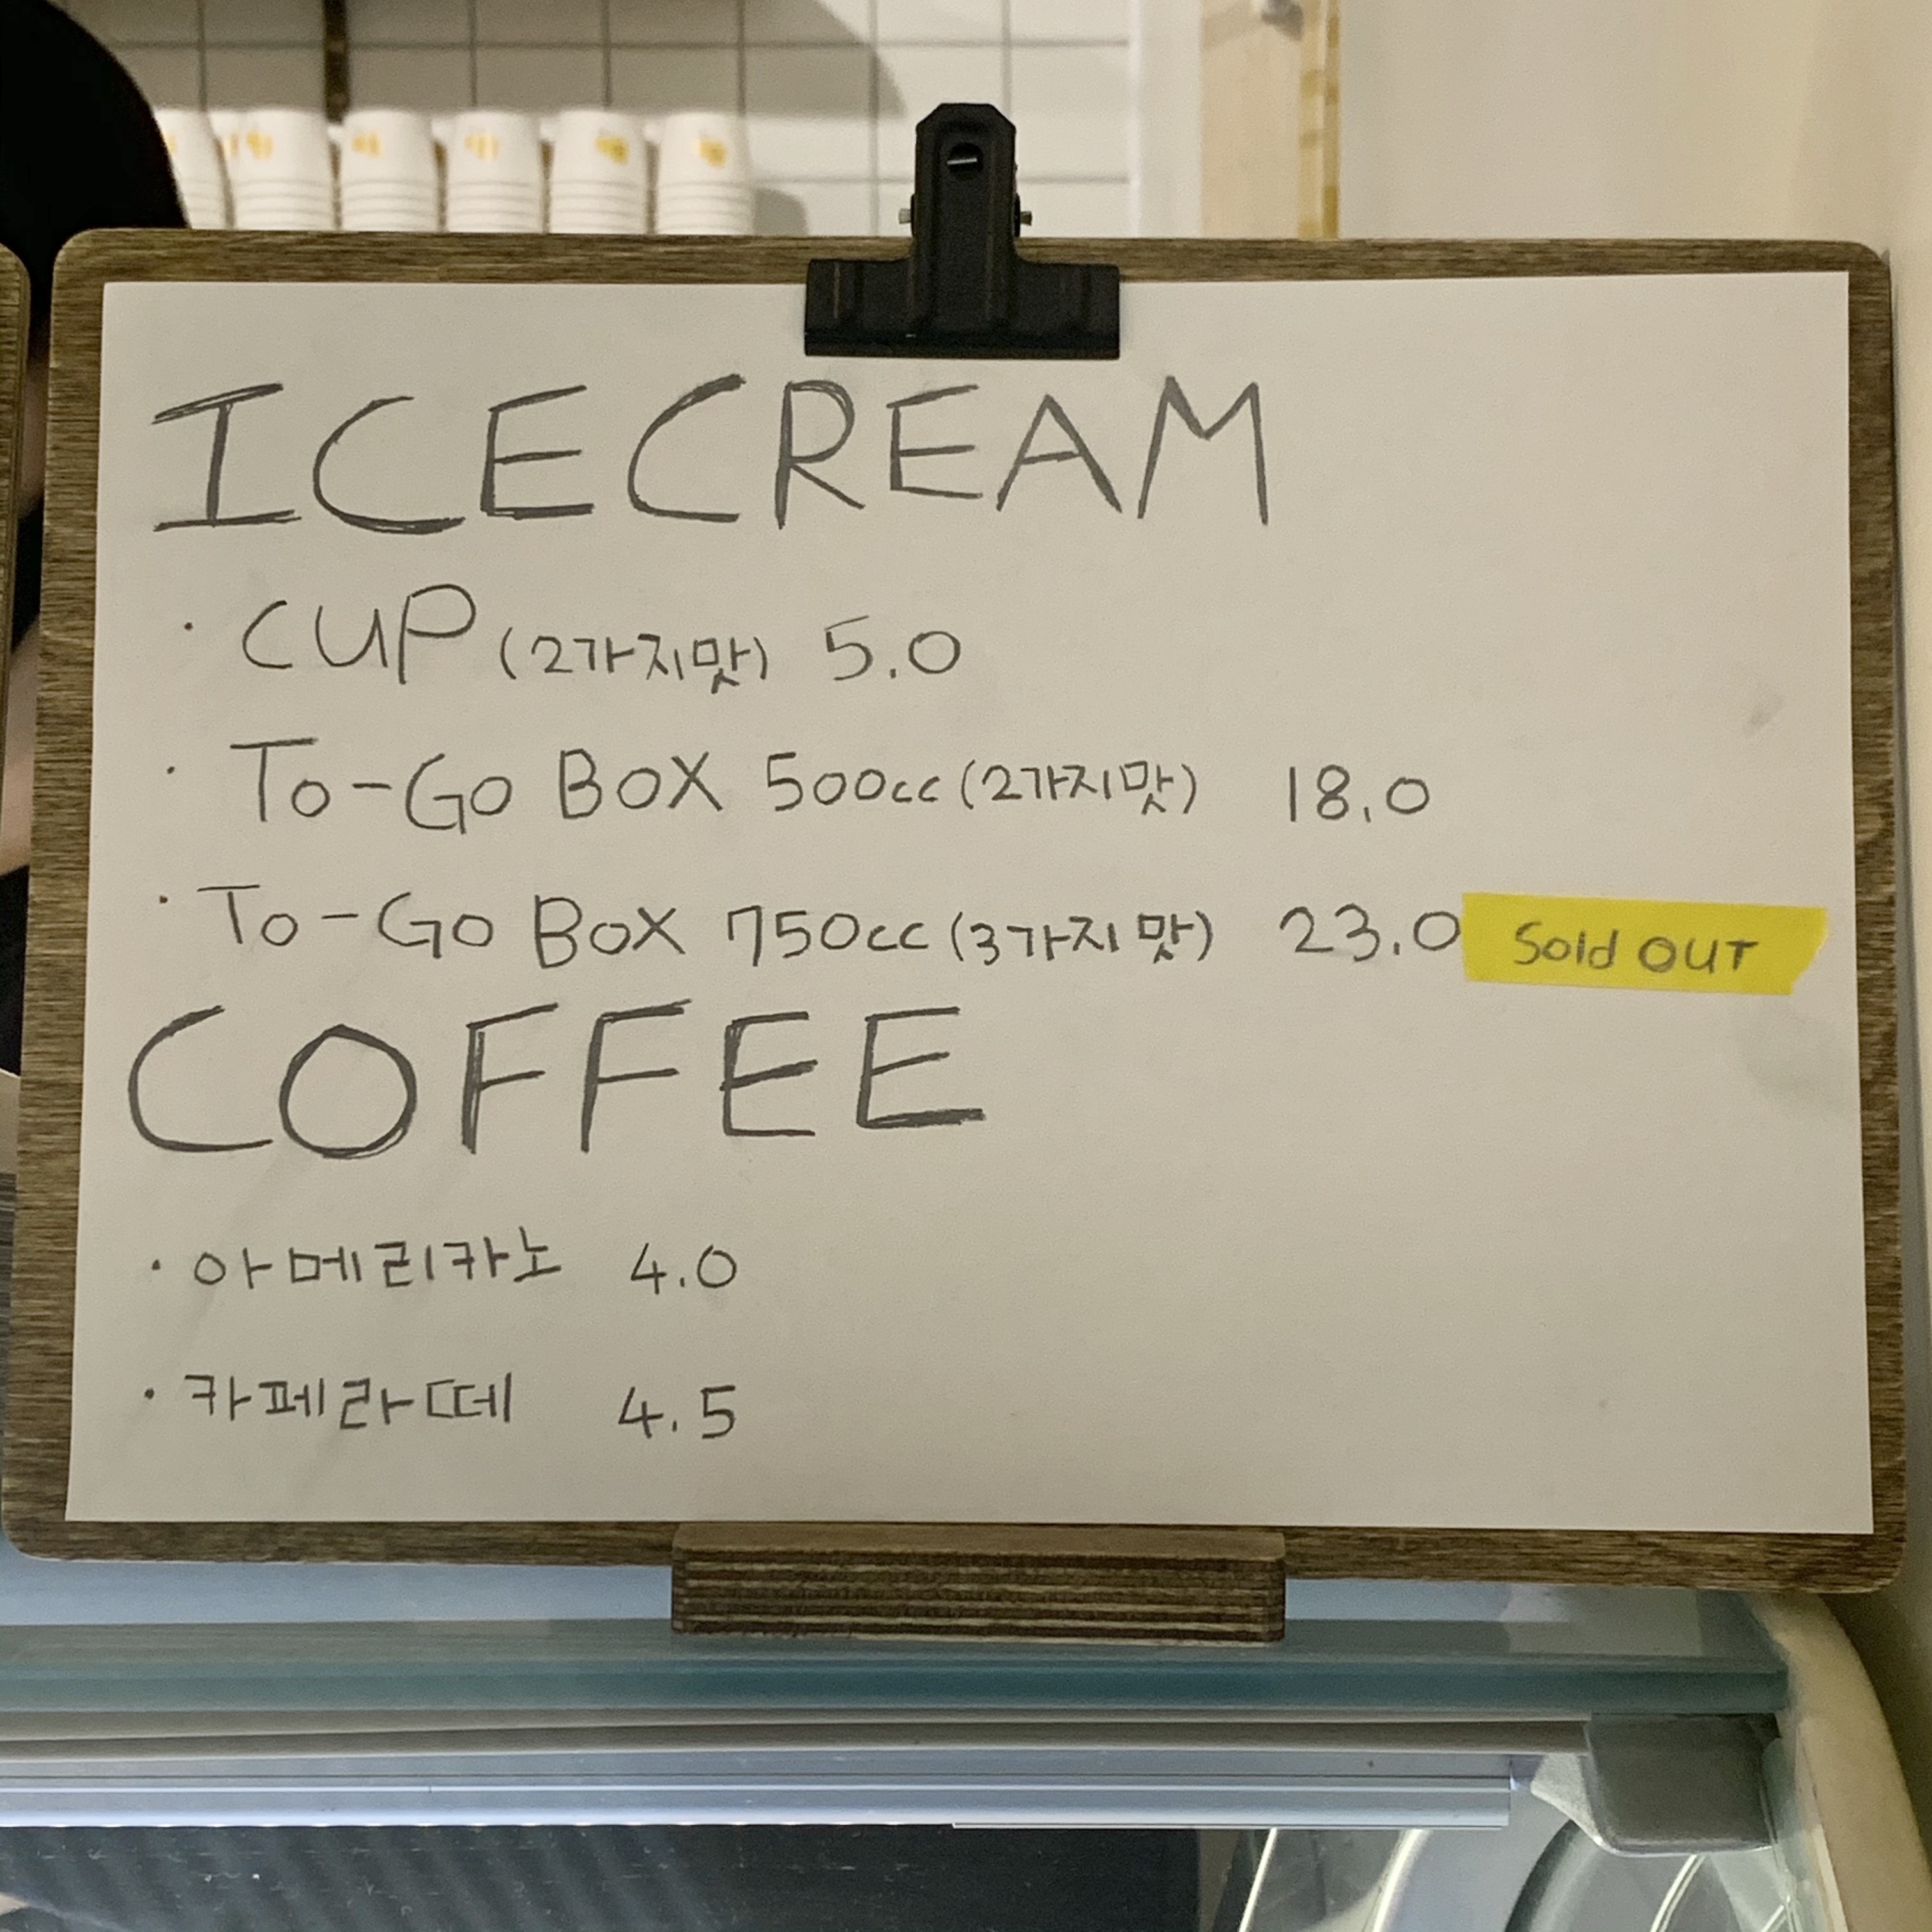 ICECREAM
· CUP (2가지맛) 5.0
· To-Go BOX 500cc (2가지맛) 18.0
· To-Go BOX 750cc (3가지맛) 23.0 Sold OUT
COFFEE
· 아메리카노 4.0
· 카페라떼 4.5